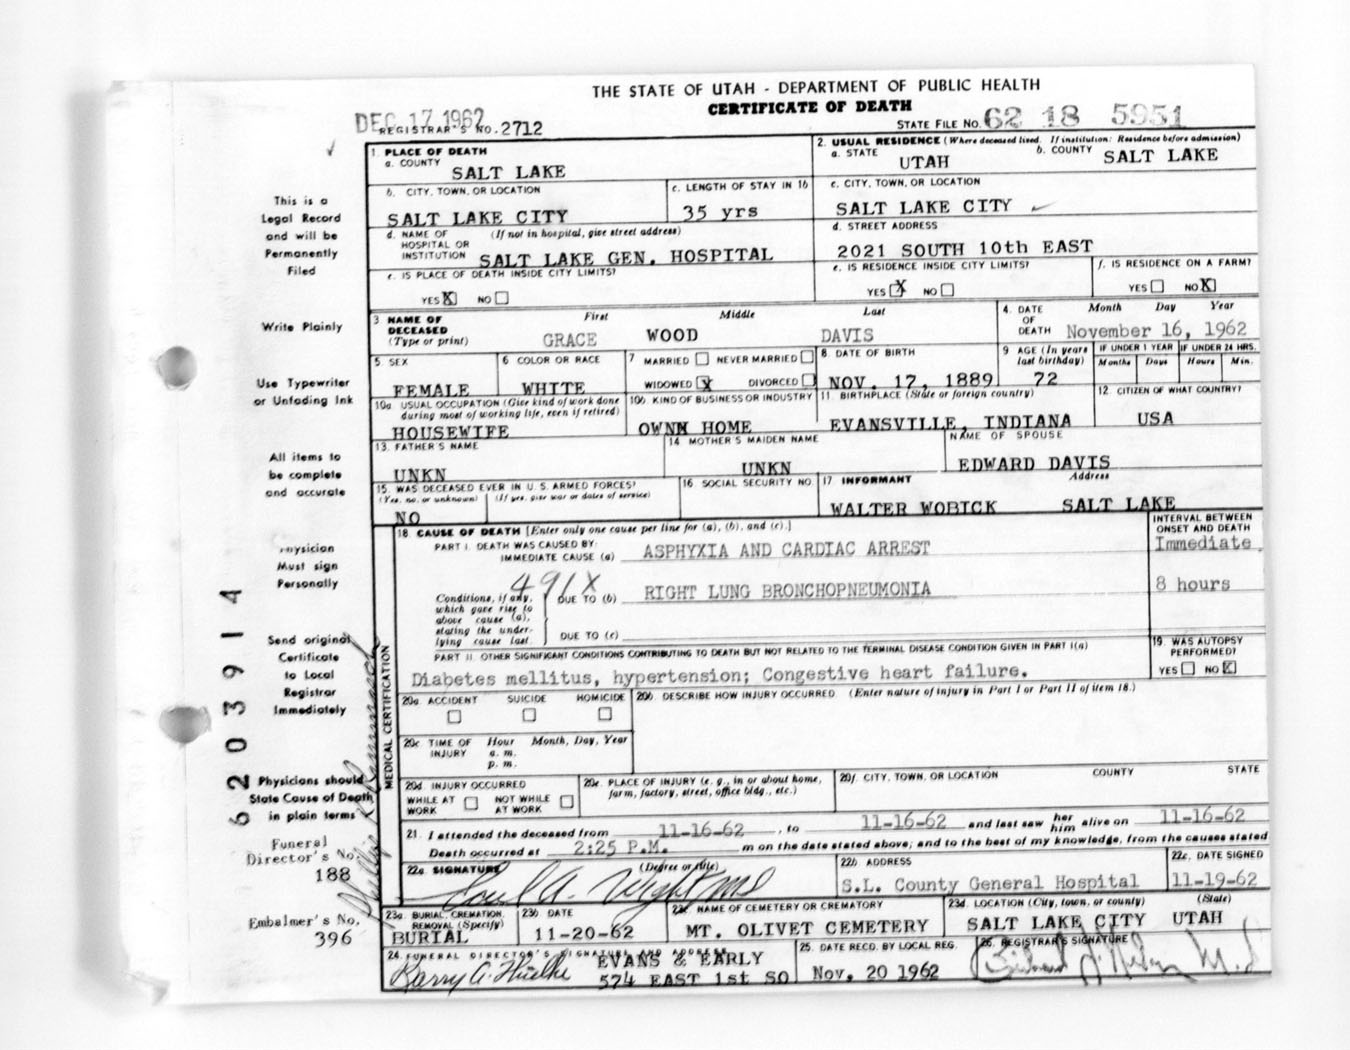 THE STATE OF UTAH - DEPARTMENT OF PUBLIC HEALTH
CERTIFICATE OF DEATH
DEC 17 1962
REGISTRAR'S NO. 2712
STATE FILE NO. 62 18 5951
1. PLACE OF DEATH
a. COUNTY
SALT LAKE
2. USUAL RESIDENCE (Where deceased lived. If institution: Residence before admission)
a. STATE UTAH b. COUNTY SALT LAKE
b. CITY, TOWN, OR LOCATION
SALT LAKE CITY
c. LENGTH OF STAY IN 1b
35 yrs
c. CITY, TOWN, OR LOCATION
SALT LAKE CITY
d. NAME OF HOSPITAL OR INSTITUTION (If not in hospital, give street address)
SALT LAKE GEN. HOSPITAL
d. STREET ADDRESS
2021 SOUTH 10th EAST
e. IS PLACE OF DEATH INSIDE CITY LIMITS?
YES X NO
e. IS RESIDENCE INSIDE CITY LIMITS?
YES X NO
f. IS RESIDENCE ON A FARM?
YES NO X
3 NAME OF DECEASED (Type or print)
First Middle Last
GRACE WOOD DAVIS
4. DATE OF DEATH Month Day Year
November 16, 1962
5 SEX
FEMALE
6 COLOR OR RACE
WHITE
7 MARRIED NEVER MARRIED
WIDOWED X DIVORCED
8 DATE OF BIRTH
NOV. 17, 1889
9 AGE (In years last birthday)
72
IF UNDER 1 YEAR IF UNDER 24 HRS.
Months Days Hours Min.
10a USUAL OCCUPATION (Give kind of work done during most of working life, even if retired)
HOUSEWIFE
10b KIND OF BUSINESS OR INDUSTRY
OWNN HOME
11. BIRTHPLACE (State or foreign country)
EVANSVILLE, INDIANA
12 CITIZEN OF WHAT COUNTRY?
USA
13. FATHER'S NAME
UNKN
14 MOTHER'S MAIDEN NAME
UNKN
NAME OF SPOUSE
EDWARD DAVIS
15. WAS DECEASED EVER IN U.S. ARMED FORCES?
(Yes, no, or unknown) (If yes, give war or dates of service)
NO
16 SOCIAL SECURITY NO.
17 INFORMANT Address
WALTER WOBICK SALT LAKE
18 CAUSE OF DEATH [Enter only one cause per line for (a), (b), and (c).]
PART I. DEATH WAS CAUSED BY:
IMMEDIATE CAUSE (a) ASPHYXIA AND CARDIAC ARREST
INTERVAL BETWEEN ONSET AND DEATH
Immediate
491X
Conditions, if any, which gave rise to above cause (a), stating the under-lying cause last
DUE TO (b) RIGHT LUNG BRONCHOPNEUMONIA
8 hours
DUE TO (c)
PART II. OTHER SIGNIFICANT CONDITIONS CONTRIBUTING TO DEATH BUT NOT RELATED TO THE TERMINAL DISEASE CONDITION GIVEN IN PART I(a)
Diabetes mellitus, hypertension; Congestive heart failure.
19. WAS AUTOPSY PERFORMED?
YES NO X
20a ACCIDENT SUICIDE HOMICIDE
20b DESCRIBE HOW INJURY OCCURRED (Enter nature of injury in Part I or Part II of item 18.)
20c TIME OF INJURY Hour Month, Day, Year
a. m.
p. m.
20d INJURY OCCURRED
WHILE AT WORK NOT WHILE AT WORK
20e. PLACE OF INJURY (e. g., in or about home, farm, factory, street, office bldg., etc.)
20f. CITY, TOWN, OR LOCATION COUNTY STATE
21. I attended the deceased from 11-16-62, to 11-16-62 and last saw her him alive on 11-16-62
Death occurred at 2:25 P.M. m on the date stated above; and to the best of my knowledge, from the causes stated
22a SIGNATURE (Degree or title)
A. Wight MD
22b ADDRESS
S.L. County General Hospital
22c. DATE SIGNED
11-19-62
23a. BURIAL, CREMATION, REMOVAL (Specify)
BURIAL
23b DATE
11-20-62
23c NAME OF CEMETERY OR CREMATORY
MT. OLIVET CEMETERY
23d LOCATION (City, town, or county) (State)
SALT LAKE CITY UTAH
24 FUNERAL DIRECTOR'S SIGNATURE AND ADDRESS
EVANS & EARLY
574 EAST 1st SO
25. DATE RECD. BY LOCAL REG.
Nov, 20 1962
26. REGISTRAR'S SIGNATURE
M.D.
This is a
Legal Record
and will be
Permanently
Filed
Write Plainly
Use Typewriter
or Unfading Ink
All items to
be complete
and accurate
Physician
Must sign
Personally
Send original
Certificate
to Local
Registrar
Immediately
Physicians should
State Cause of Death
in plain terms
Funeral
Director's No.
188
Embalmer's No.
396
6203914
MEDICAL CERTIFICATION